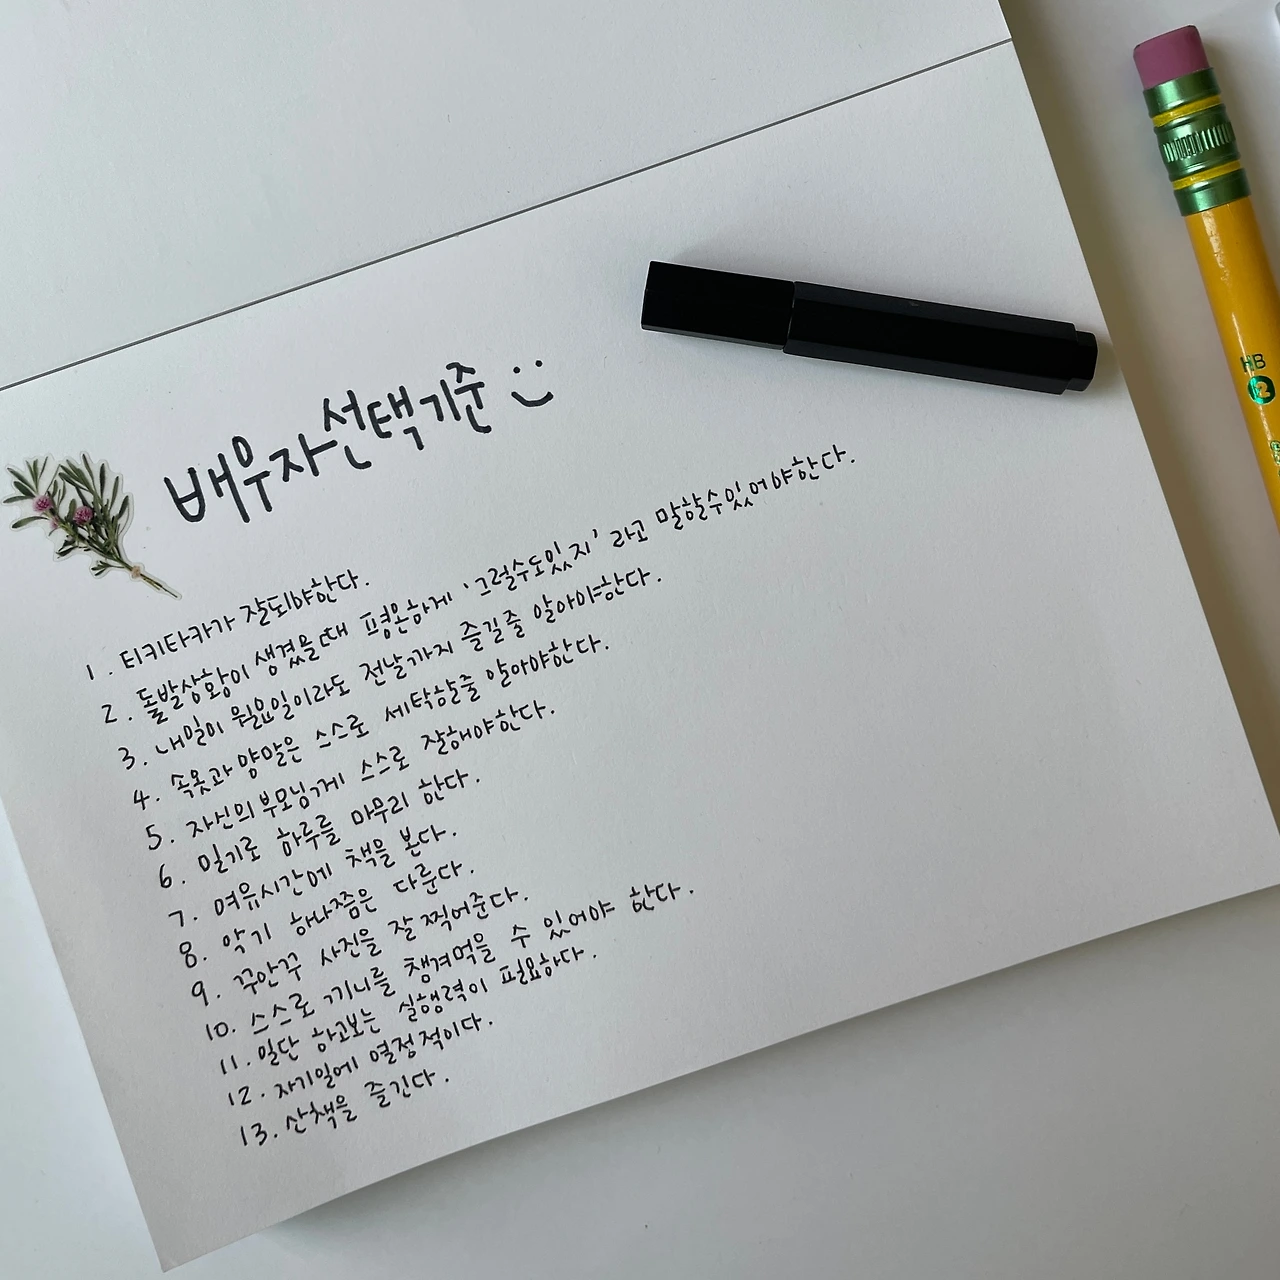 배우자선택기준 :)
1. 티키타카가 잘되야한다.
2. 돌발상황이 생겼을때 평온하게 '그럴수도있지' 라고 말할수있어야한다.
3. 내일이 월요일이라도 전날까지 즐길줄 알아야한다.
4. 속옷과 양말은 스스로 세탁할줄 알아야한다.
5. 자신의 부모님께 스스로 잘해야한다.
6. 일기로 하루를 마무리 한다.
7. 여유시간에 책을 본다.
8. 악기 하나쯤은 다룬다.
9. 꾸안꾸 사진을 잘 찍어준다.
10. 스스로 끼니를 챙겨먹을 수 있어야 한다.
11. 일단 하고보는 실행력이 필요하다.
12. 자기일에 열정적이다.
13. 산책을 즐긴다.
HB
2